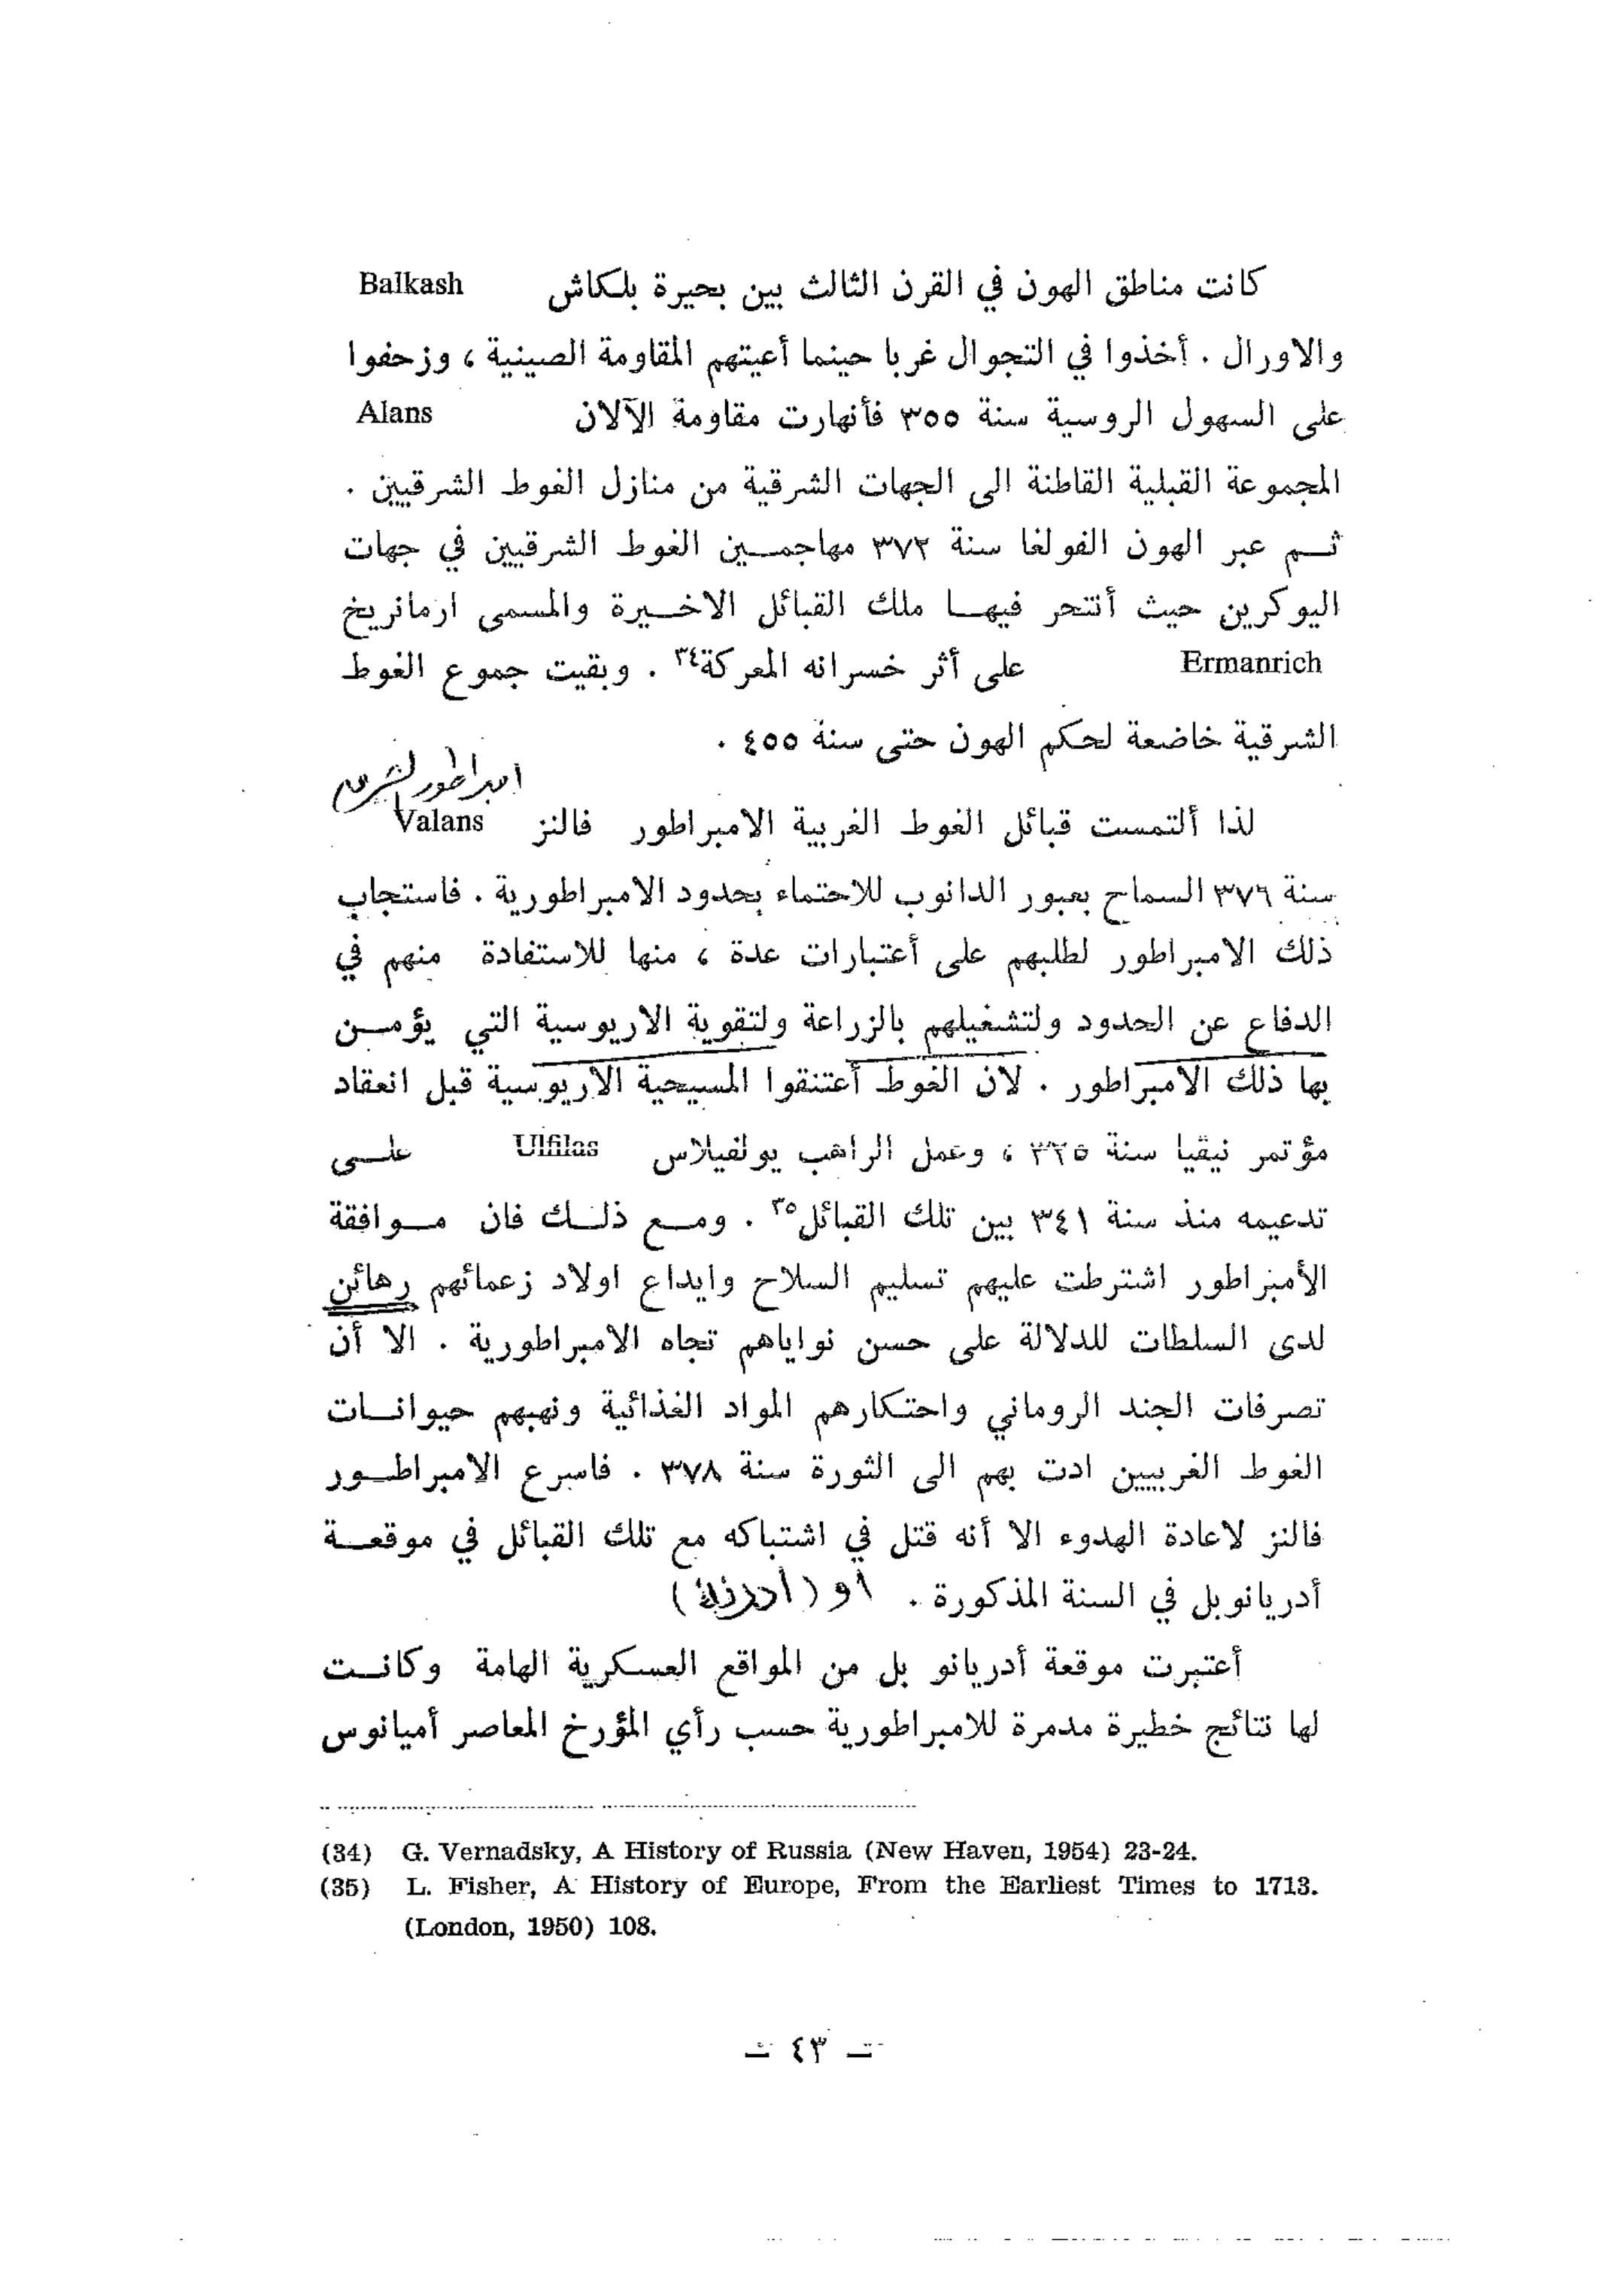 كانت مناطق الهون في القرن الثالث بين بحيرة بلكاش Balkash
والاورال . أخذوا في التجوال غربا حينما أعيتهم المقاومة الصينية ، وزحفوا
على السهول الروسية سنة ٣٥٥ فأنهارت مقاومة الآلان Alans
المجموعة القبلية القاطنة الى الجهات الشرقية من منازل الغوط الشرقيين .
ثم عبر الهون الفولغا سنة ٣٧٢ مهاجمين الغوط الشرقيين في جهات
اليوكرين حيث أنتحر فيها ملك القبائل الاخيرة والمسمى ارمانريخ
Ermanrich على أثر خسرانه المعركة٣٤ . وبقيت جموع الغوط
الشرقية خاضعة لحكم الهون حتى سنة ٤٥٥ .
امبراطور الشرق
لذا ألتمست قبائل الغوط الغربية الامبراطور فالنز Valans
سنة ٣٧٦ السماح بعبور الدانوب للاحتماء بحدود الامبراطورية . فاستجاب
ذلك الامبراطور لطلبهم على أعتبارات عدة ، منها للاستفادة منهم في
الدفاع عن الحدود ولتشغيلهم بالزراعة ولتقوية الاريوسية التي يؤمن
بها ذلك الامبراطور . لان الغوط أعتنقوا المسيحية الاريوسية قبل انعقاد
مؤتمر نيقيا سنة ٣٢٥ ، وعمل الراهب يولفيلاس Ulfilas على
تدعيمه منذ سنة ٣٤١ بين تلك القبائل٣٥ . ومع ذلك فان موافقة
الأمبراطور اشترطت عليهم تسليم السلاح وايداع اولاد زعمائهم رهائن
لدى السلطات للدلالة على حسن نواياهم تجاه الامبراطورية . الا أن
تصرفات الجند الروماني واحتكارهم المواد الغذائية ونهبهم حيوانات
الغوط الغربيين ادت بهم الى الثورة سنة ٣٧٨ . فاسرع الامبراطور
فالنز لاعادة الهدوء الا أنه قتل في اشتباكه مع تلك القبائل في موقعة
أدريانوبل في السنة المذكورة . او (أدرنة)
أعتبرت موقعة أدريانو بل من المواقع العسكرية الهامة وكانت
لها نتائج خطيرة مدمرة للامبراطورية حسب رأي المؤرخ المعاصر أميانوس
(34) G. Vernadsky, A History of Russia (New Haven, 1954) 23-24.
(35) L. Fisher, A History of Europe, From the Earliest Times to 1713.
(London, 1950) 108.
— ٤٣ —